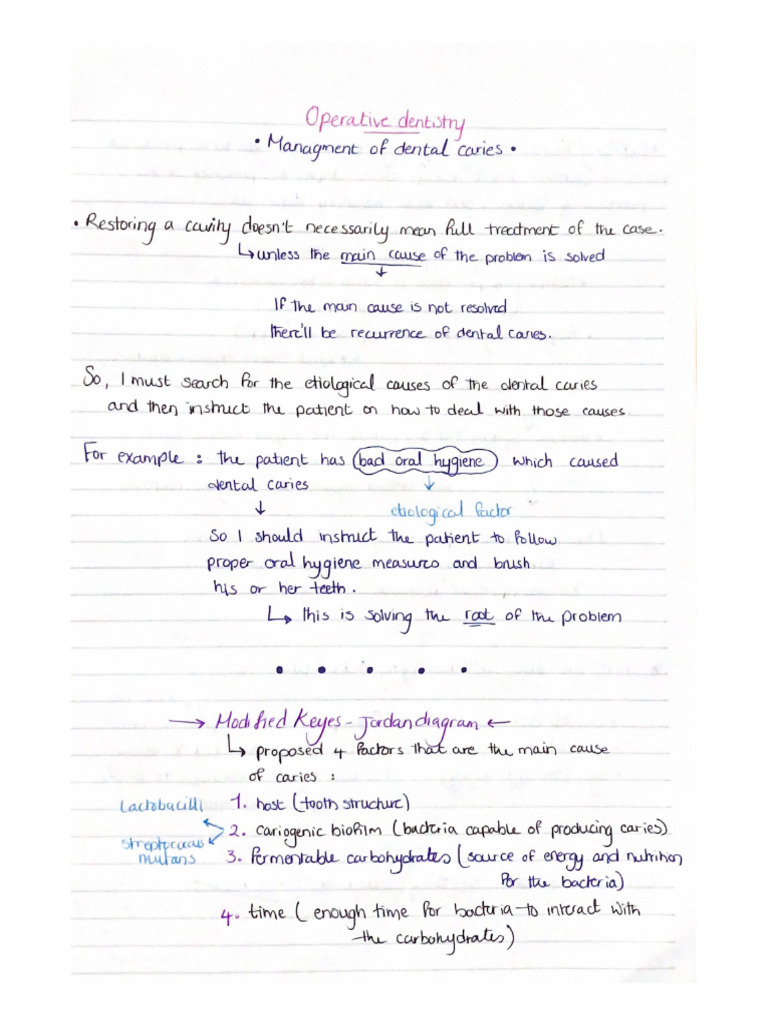 Operative dentistry
• Managment of dental caries •
• Restoring a cavity doesn't necessarily mean full treatment of the case.
↳ unless the main cause of the problem is solved
↓
If the main cause is not resolved
there'll be recurrence of dental caries.
So, I must search for the etiological causes of the dental caries
and then instruct the patient on how to deal with those causes.
For example : the patient has bad oral hygiene which caused
dental caries
↓ ↓ etiological factor
So I should instruct the patient to follow
proper oral hygiene measures and brush
his or her teeth.
↳ this is solving the root of the problem
• • • • •
→ Modified Keyes - Jordan diagram ←
↳ proposed 4 factors that are the main cause
of caries :
1. host (tooth structure)
Lactobacilli
2. cariogenic biofilm (bacteria capable of producing caries)
streptococcus
mutans
3. fermentable carbohydrates (source of energy and nutrition
for the bacteria)
4. time ( enough time for bacteria to interact with
the carbohydrates)